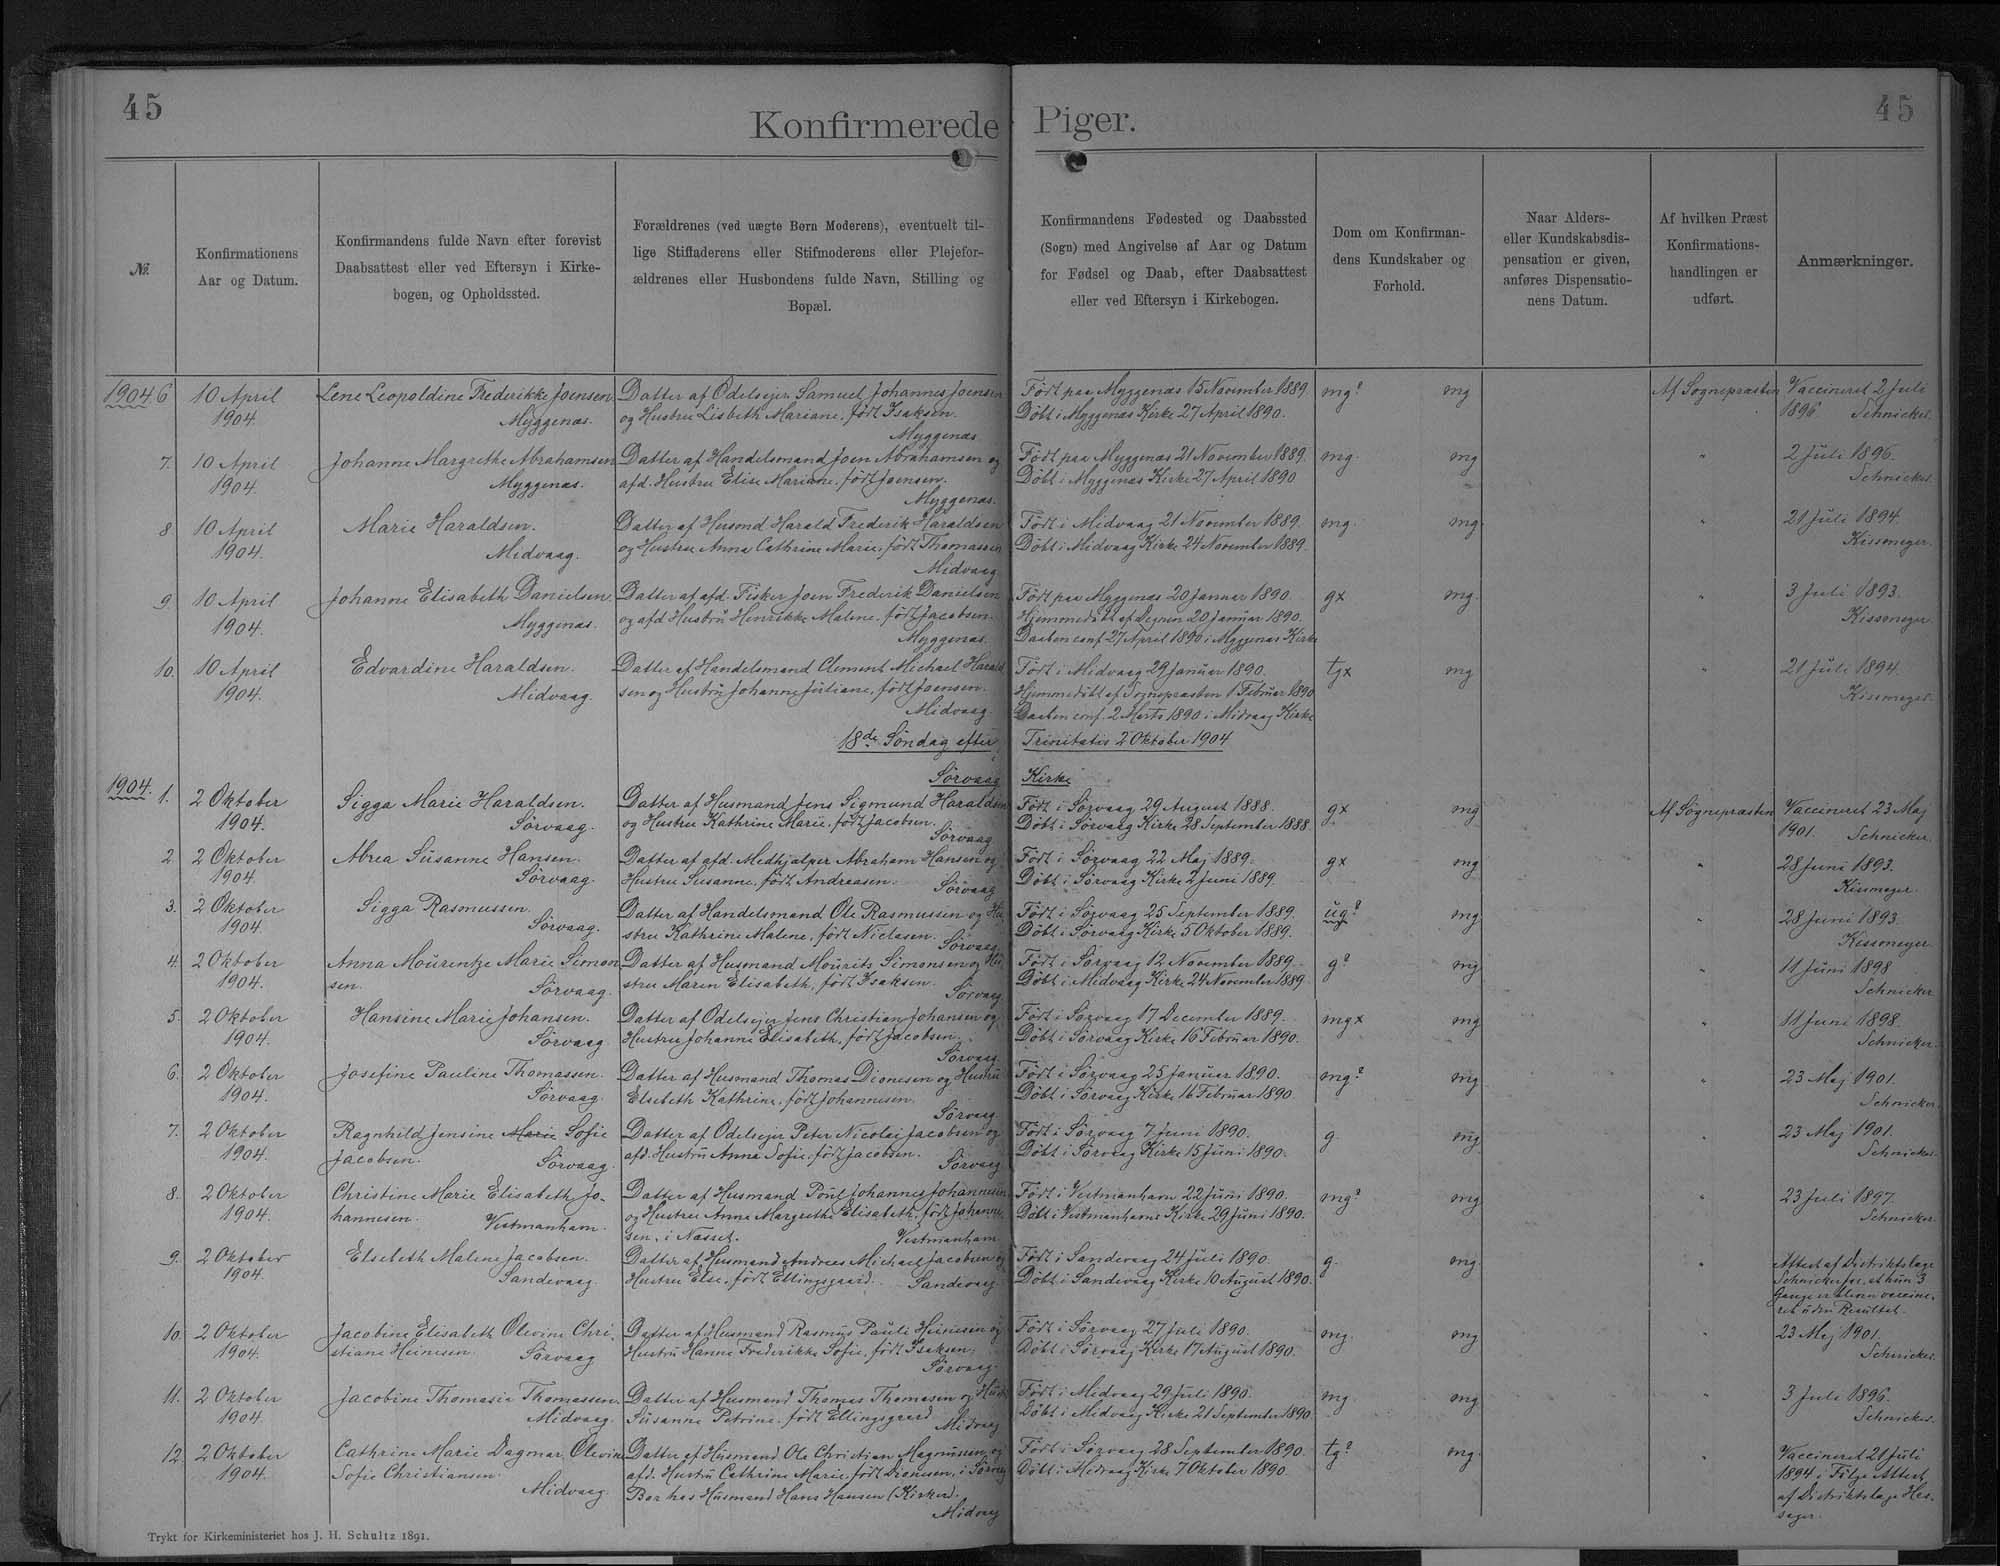 45
Konfirmerede Piger.
45
№
Konfirmationens
Aar og Datum.
Konfirmandens fulde Navn efter forevist
Daabsattest eller ved Eftersyn i Kirke-
bogen, og Opholdssted.
Forældrenes (ved uægte Børn Moderens), eventuelt til-
lige Stiffaderens eller Stifmoderens eller Plejefor-
ældrenes eller Husbondens fulde Navn, Stilling og
Bopæl.
Konfirmandens Fødested og Daabssted
(Sogn) med Angivelse af Aar og Datum
for Fødsel og Daab, efter Daabsattest
eller ved Eftersyn i Kirkebogen.
Dom om Konfirman-
dens Kundskaber og
Forhold.
Naar Alders-
eller Kundskabsdis-
pensation er given,
anføres Dispensatio-
nens Datum.
Af hvilken Præst
Konfirmations-
handlingen er
udført.
Anmærkninger.
1904 6 10 April
1904.
Lene Leopoldine Frederikke Joensen
Myggenæs.
Datter af Odelsejer Samuel Johannes Joensen
og Hustru Lisbeth Mariane, født Isaksen.
Myggenæs
Født paa Myggenæs 15 November 1889
Döbt i Myggenæs Kirke 27 April 1890.
mg? mg
Af Sognepræsten
Vaccineret 2 Juli
1896 Schnicker.
7. 10 April
1904.
Johanne Margrethe Abrahamsen
Myggenæs.
Datter af Handelsmand Joen Abrahamsen og
afd. Hustru Elise Mariane, født Joensen.
Myggenæs.
Født paa Myggenæs 21 November 1889.
Döbt i Myggenæs Kirke 27 April 1890
mg. mg
"
2 Juli 1896.
Schnicker.
8. 10 April
1904.
Marie Haraldsen.
Midvaag.
Datter af Husmand Harald Frederik Haraldsen
og Hustru Anna Cathrine Marie, født Thomassen
Midvaag
Født i Midvaag 21 November 1889.
Döbt i Midvaag Kirke 24 November 1889.
mg. mg.
"
21 Juli 1894.
Kissmeyer.
9. 10 April
1904.
Johanne Elisabeth Danielsen.
Myggenæs.
Datter af afd. Fisker Joen Frederik Danielsen
og afd Hustru Henrikke Malene, født Jacobsen.
Myggenæs.
Født paa Myggenæs 20 Januar 1890.
Hjemmedöbt af Degnen 20 Januar 1890.
Daaben conf. 27 April 1890 i Myggenæs Kirke
gx mg.
"
3 Juli 1893.
Kissmeyer.
10. 10 April
1904.
Edvardine Haraldsen.
Midvaag.
Datter af Handelsmand Clement Michael Harald
sen og Hustru Johanne Juliane, født Joensen.
Midvaag.
Født i Midvaag 29 Januar 1890.
Hjemmedöbt af Sognepræsten 1 Februar 1890
Daaben conf. 2 Marts 1890 i Midvaag Kirke
tgx mg
"
21 Juli 1894.
Kissmeyer.
18de Søndag efter Trinitatis 2 Oktober 1904
Sörvaag Kirke
1904. 1. 2 Oktober
1904.
Sigga Marie Haraldsen.
Sörvaag.
Datter af Husmand Jens Sigmund Haraldsen
og Hustru Kathrine Marie, født Jacobsen.
Sörvaag
Født i Sörvaag 29 August 1888.
Döbt i Sörvaag Kirke 28 September 1888.
gx mg
Af Sognepræsten
Vaccineret 23 Maj
1901. Schnicker.
2. 2 Oktober
1904.
Abrea Susanne Hansen.
Sörvaag.
Datter af afd. Medhjælper Abraham Hansen og
Hustru Susanne, født Andreasen.
Sörvaag
Født i Sörvaag 22 Maj 1889.
Döbt i Sörvaag Kirke 2 Juni 1889.
gx mg
"
28 Juni 1893.
Kissmeyer.
3. 2 Oktober
1904.
Sigga Rasmussen.
Sörvaag.
Datter af Handelsmand Ole Rasmussen og Hu-
stru Kathrine Malene, født Niclasen.
Sörvaag
Født i Sörvaag 25 September 1889.
Döbt i Sörvaag Kirke 5 Oktober 1889.
ug? mg
"
28 Juni 1893.
Kissmeyer
4. 2 Oktober
1904.
Anna Mourentze Marie Simon
sen. Sörvaag.
Datter af Husmand Mourits Simonsen og Hu-
stru Maren Elisabeth, født Isaksen.
Sörvaag
Født i Sörvaag 12 November 1889.
Döbt i Midvaag Kirke 24 November 1889.
g? mg
"
11 Juni 1898
Schnicker
5. 2 Oktober
1904.
Hansine Marie Johansen.
Sörvaag
Datter af Odelsejer Jens Christian Johansen og
Hustru Johanne Elisabeth, født Jacobsen.
Sörvaag.
Født i Sörvaag 17 December 1889.
Döbt i Sörvaag Kirke 16 Februar 1890.
mgx mg
"
11 Juni 1898.
Schnicker.
6. 2 Oktober
1904.
Josefine Pauline Thomassen.
Sörvaag.
Datter af Husmand Thomas Dionesen og Hustru
Elsebeth Kathrine, født Johannesen.
Sörvaag
Født i Sörvaag 25 Januar 1890.
Döbt i Sörvaag Kirke 16 Februar 1890
mg? mg
"
23 Maj 1901.
Schnicker.
7. 2 Oktober
1904.
Ragnhild Jensine Marie Sofie
Jacobsen. Sörvaag.
Datter af Odelsejer Peter Nicolai Jacobsen og
afd. Hustru Anna Sofie, født Jacobsen.
Sörvaag
Født i Sörvaag 7 Juni 1890.
Döbt i Sörvaag Kirke 15 Juni 1890.
g. mg
23 Maj 1901.
Schnicker.
8. 2 Oktober
1904.
Christine Marie Elisabeth Jo-
hannesen. Vestmanhavn.
Datter af Husmand Poul Johannes Johannesen
og Hustru Anna Margrethe Elisabeth, født Johanne
sen, i Næsset. Vestmanhavn
Født i Vestmanhavn 22 Juni 1890.
Döbt i Vestmanhavns Kirke 29 Juni 1890.
mg? mg
"
23 Juli 1897.
Schnicker.
9. 2 Oktober
1904.
Elsebeth Malene Jacobsen.
Sandevaag
Datter af Husmand Andreas Michael Jacobsen og
Hustru Else, født Ellingsgaard. Sandevaag
Født i Sandevaag 24 Juli 1890.
Döbt i Sandevaag Kirke 10 August 1890.
g. mg
"
Attest af Distriktslæge
Schnicker for, at hun 3
Gange er bleven vaccine-
ret uden Resultat.
10. 2 Oktober
1904.
Jacobine Elisabeth Olevine Chri-
stiane Heinesen. Sörvaag
Datter af Husmand Rasmus Pauli Heinesen og
Hustru Hanne Frederikke Sofie, født Isaksen.
Sörvaag
Født i Sörvaag 27 Juli 1890.
Döbt i Sörvaag Kirke 17 August 1890.
mg. mg
23 Maj 1901.
Schnicker.
11. 2 Oktober
1904.
Jacobine Thomasia Thomassen.
Midvaag.
Datter af Husmand Thomas Thomasen og Hustru
Susanne Petrine, født Ellingsgaard
Midvaag
Født i Midvaag 29 Juli 1890.
Döbt i Midvaag Kirke 21 September 1890
mg. mg
"
3 Juli 1896.
Schnicker.
12. 2 Oktober
1904.
Cathrine Marie Dagmar Olevine
Sofie Christiansen.
Midvaag.
Datter af Husmand Ole Christian Magnussen og
afd. Hustru Cathrine Marie, født Dionesen, i Sörvaag
Bor hos Husmand Hans Hansen (Kirker).
Midvaag
Født i Sörvaag 28 September 1890.
Döbt i Midvaag Kirke 7 Oktober 1890.
tg? mg.
"
Vaccineret 21 Juli
1894 i Følge Attest
af Distriktslæge Hes-
sager.
Trykt for Kirkeministeriet hos J. H. Schultz 1891.